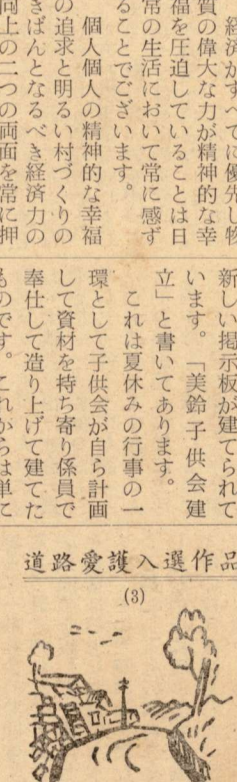 経済がすべてに優先し物
質の偉大な力が精神的な幸
福を圧迫していることは日
常の生活において常に感ず
ることでございます。
個人個人の精神的な幸福
の追求と明るい村づくりの
きばんとなるべき経済力の
向上の二つの両面を常に押
新しい掲示板が建てられて
います。「美鈴子供会建
立」と書いてあります。
これは夏休みの行事の一
環として子供会が自ら計画
して資材を持ち寄り係員で
奉仕して造り上げて建てた
ものです。これからは単に
道路愛護入選作品
(3)